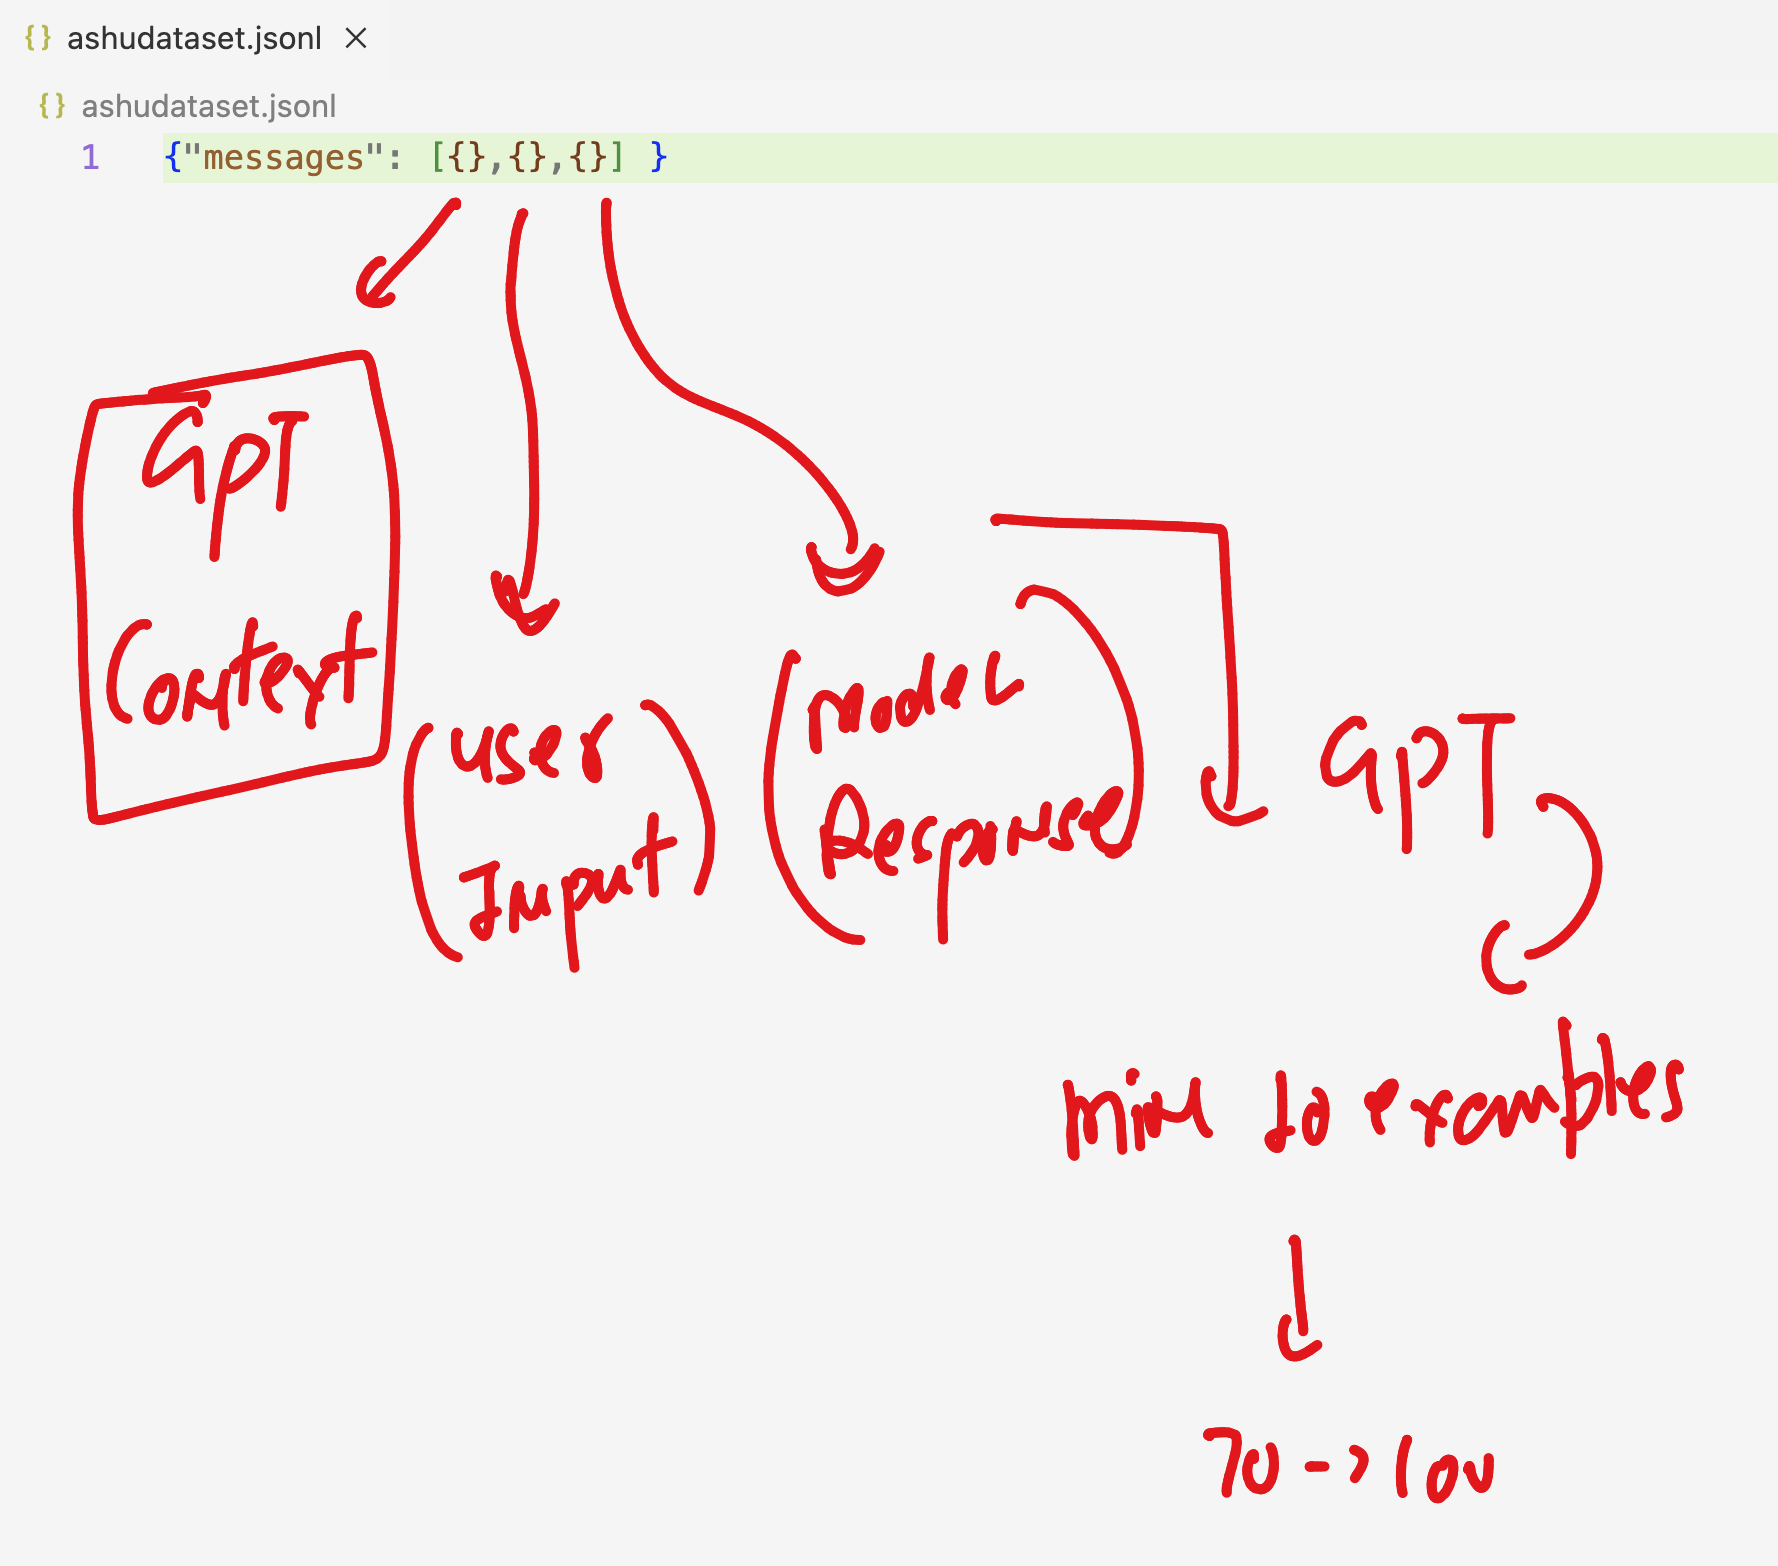 ashudataset.jsonl
ashudataset.jsonl
1 {"messages": [{},{},{}] }
GPT
Context
User
Input
Model
Response
GPT
mini 10 examples
70 -> 100